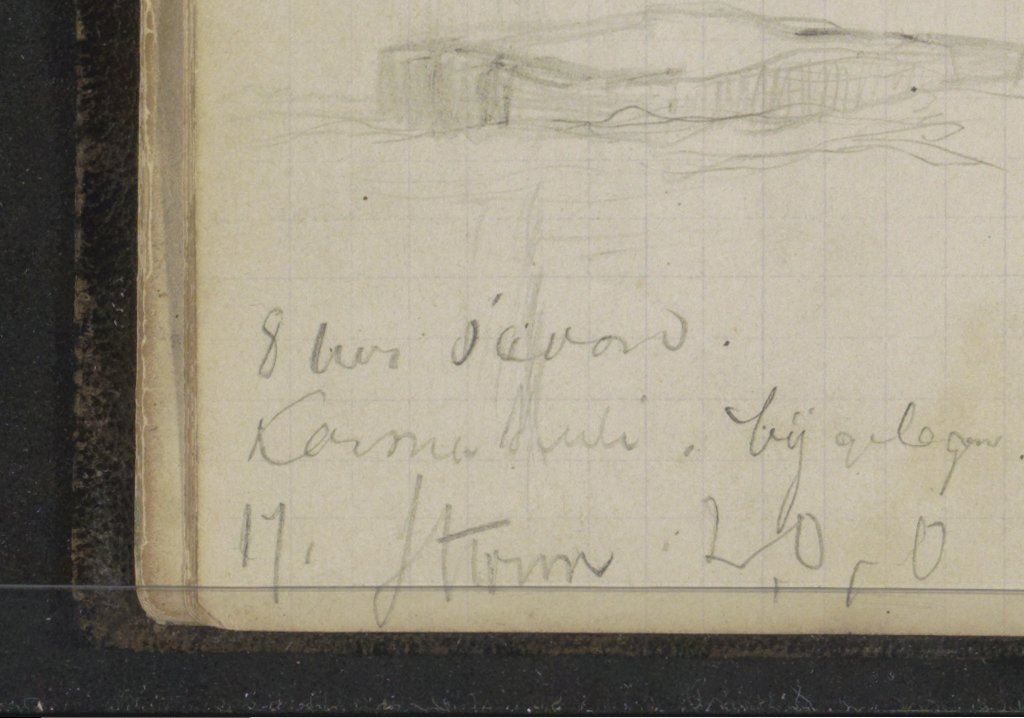 8 uur 's avond.
Karma Huli. bijgelegen.
17. Storm. Z.O.-O